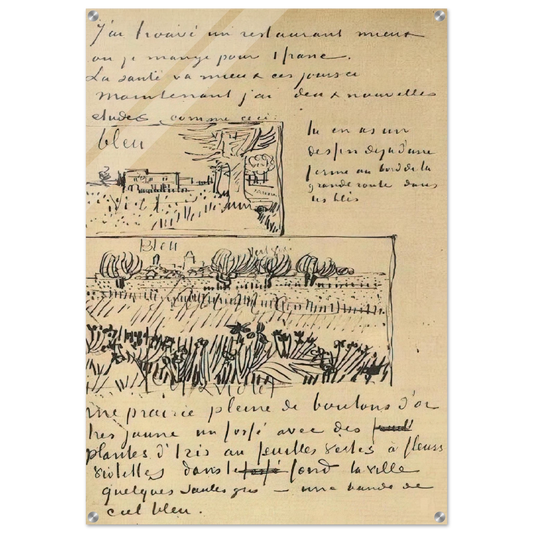 J'ai trouvé un restaurant mieux
où je mange pour 1 franc.
La santé va mieux ces jours ci
Maintenant j'ai deux nouvelles
études comme ceci:
bleu
tu en as un
dessin déjà d'une
ferme au bord de la
grande route dans
les blés
Violet
Bleu
Violet
une prairie pleine de boutons d'or
très jaune un fossé avec des
plantes d'Iris au feuilles vertes à fleurs
violettes dans le fond la ville
quelques saules gris — une bande de
ciel bleu.